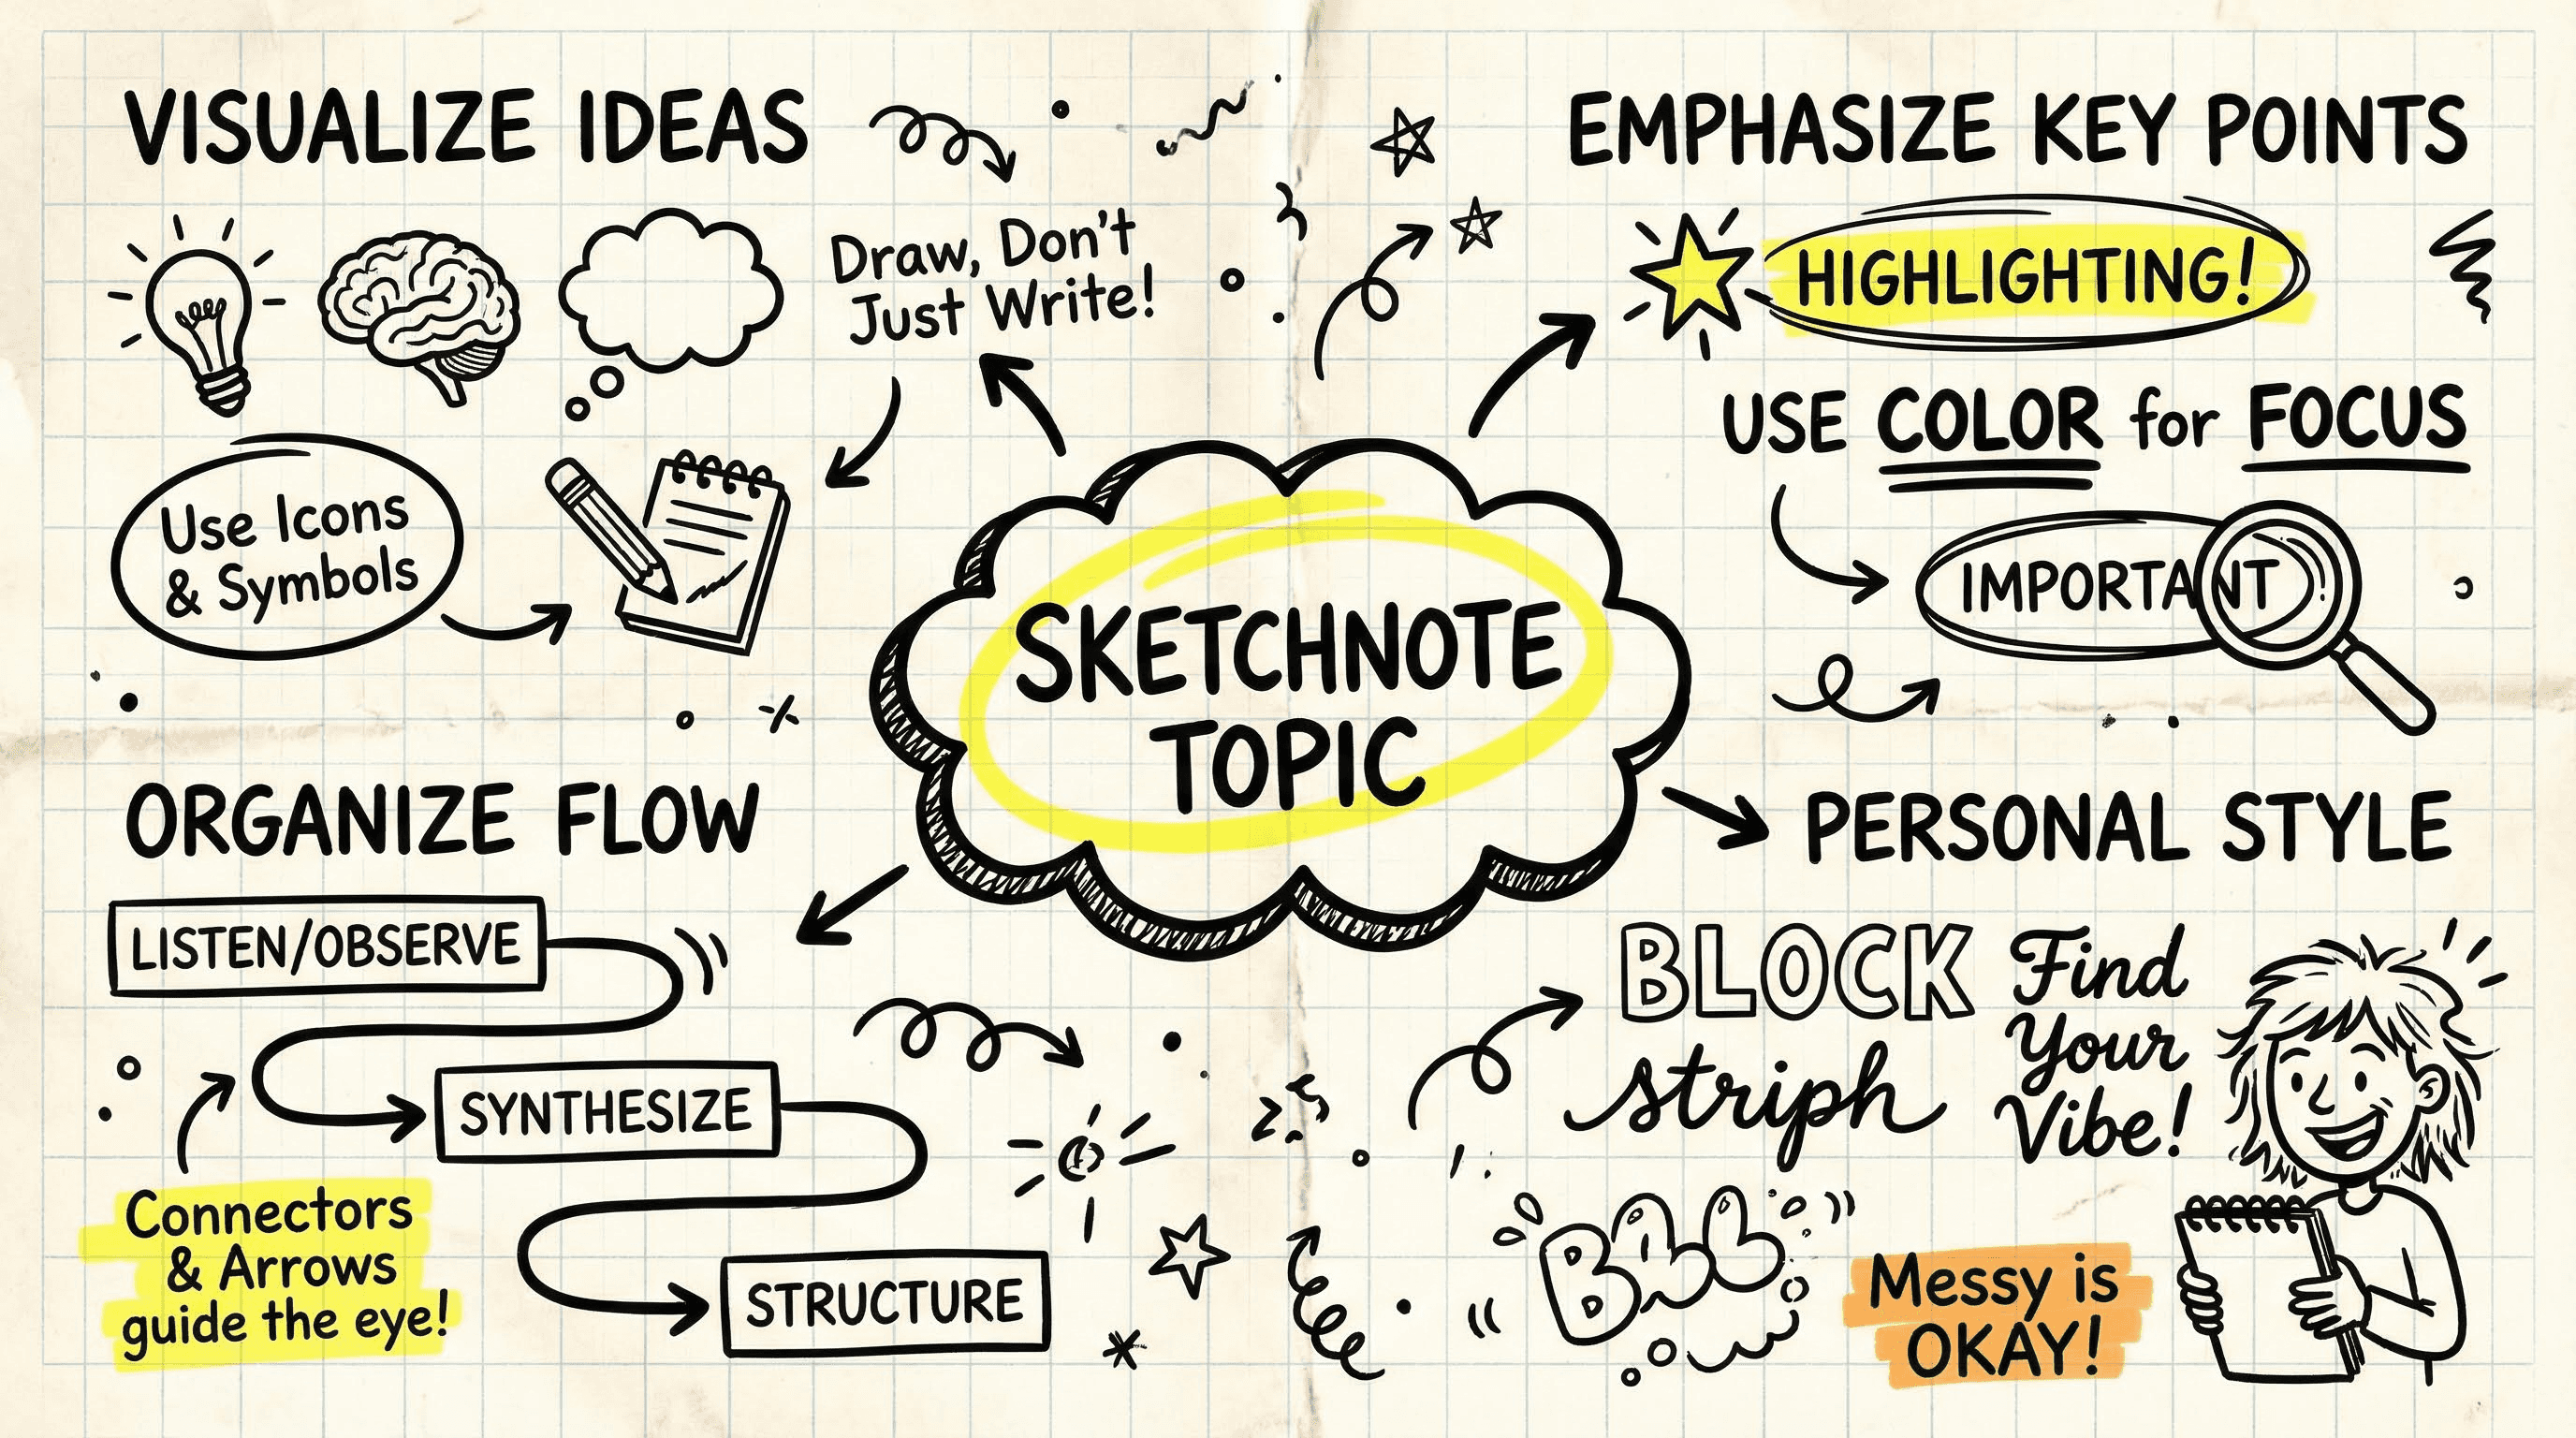 VISUALIZE IDEAS
Draw, Don't
Just Write!
Use Icons
& Symbols
EMPHASIZE KEY POINTS
HIGHLIGHTING!
USE COLOR for FOCUS
IMPORTANT
SKETCHNOTE
TOPIC
ORGANIZE FLOW
LISTEN/OBSERVE
SYNTHESIZE
STRUCTURE
Connectors
& Arrows
guide the eye!
PERSONAL STYLE
BLOCK
striph
Find
Your
Vibe!
Messy is
OKAY!